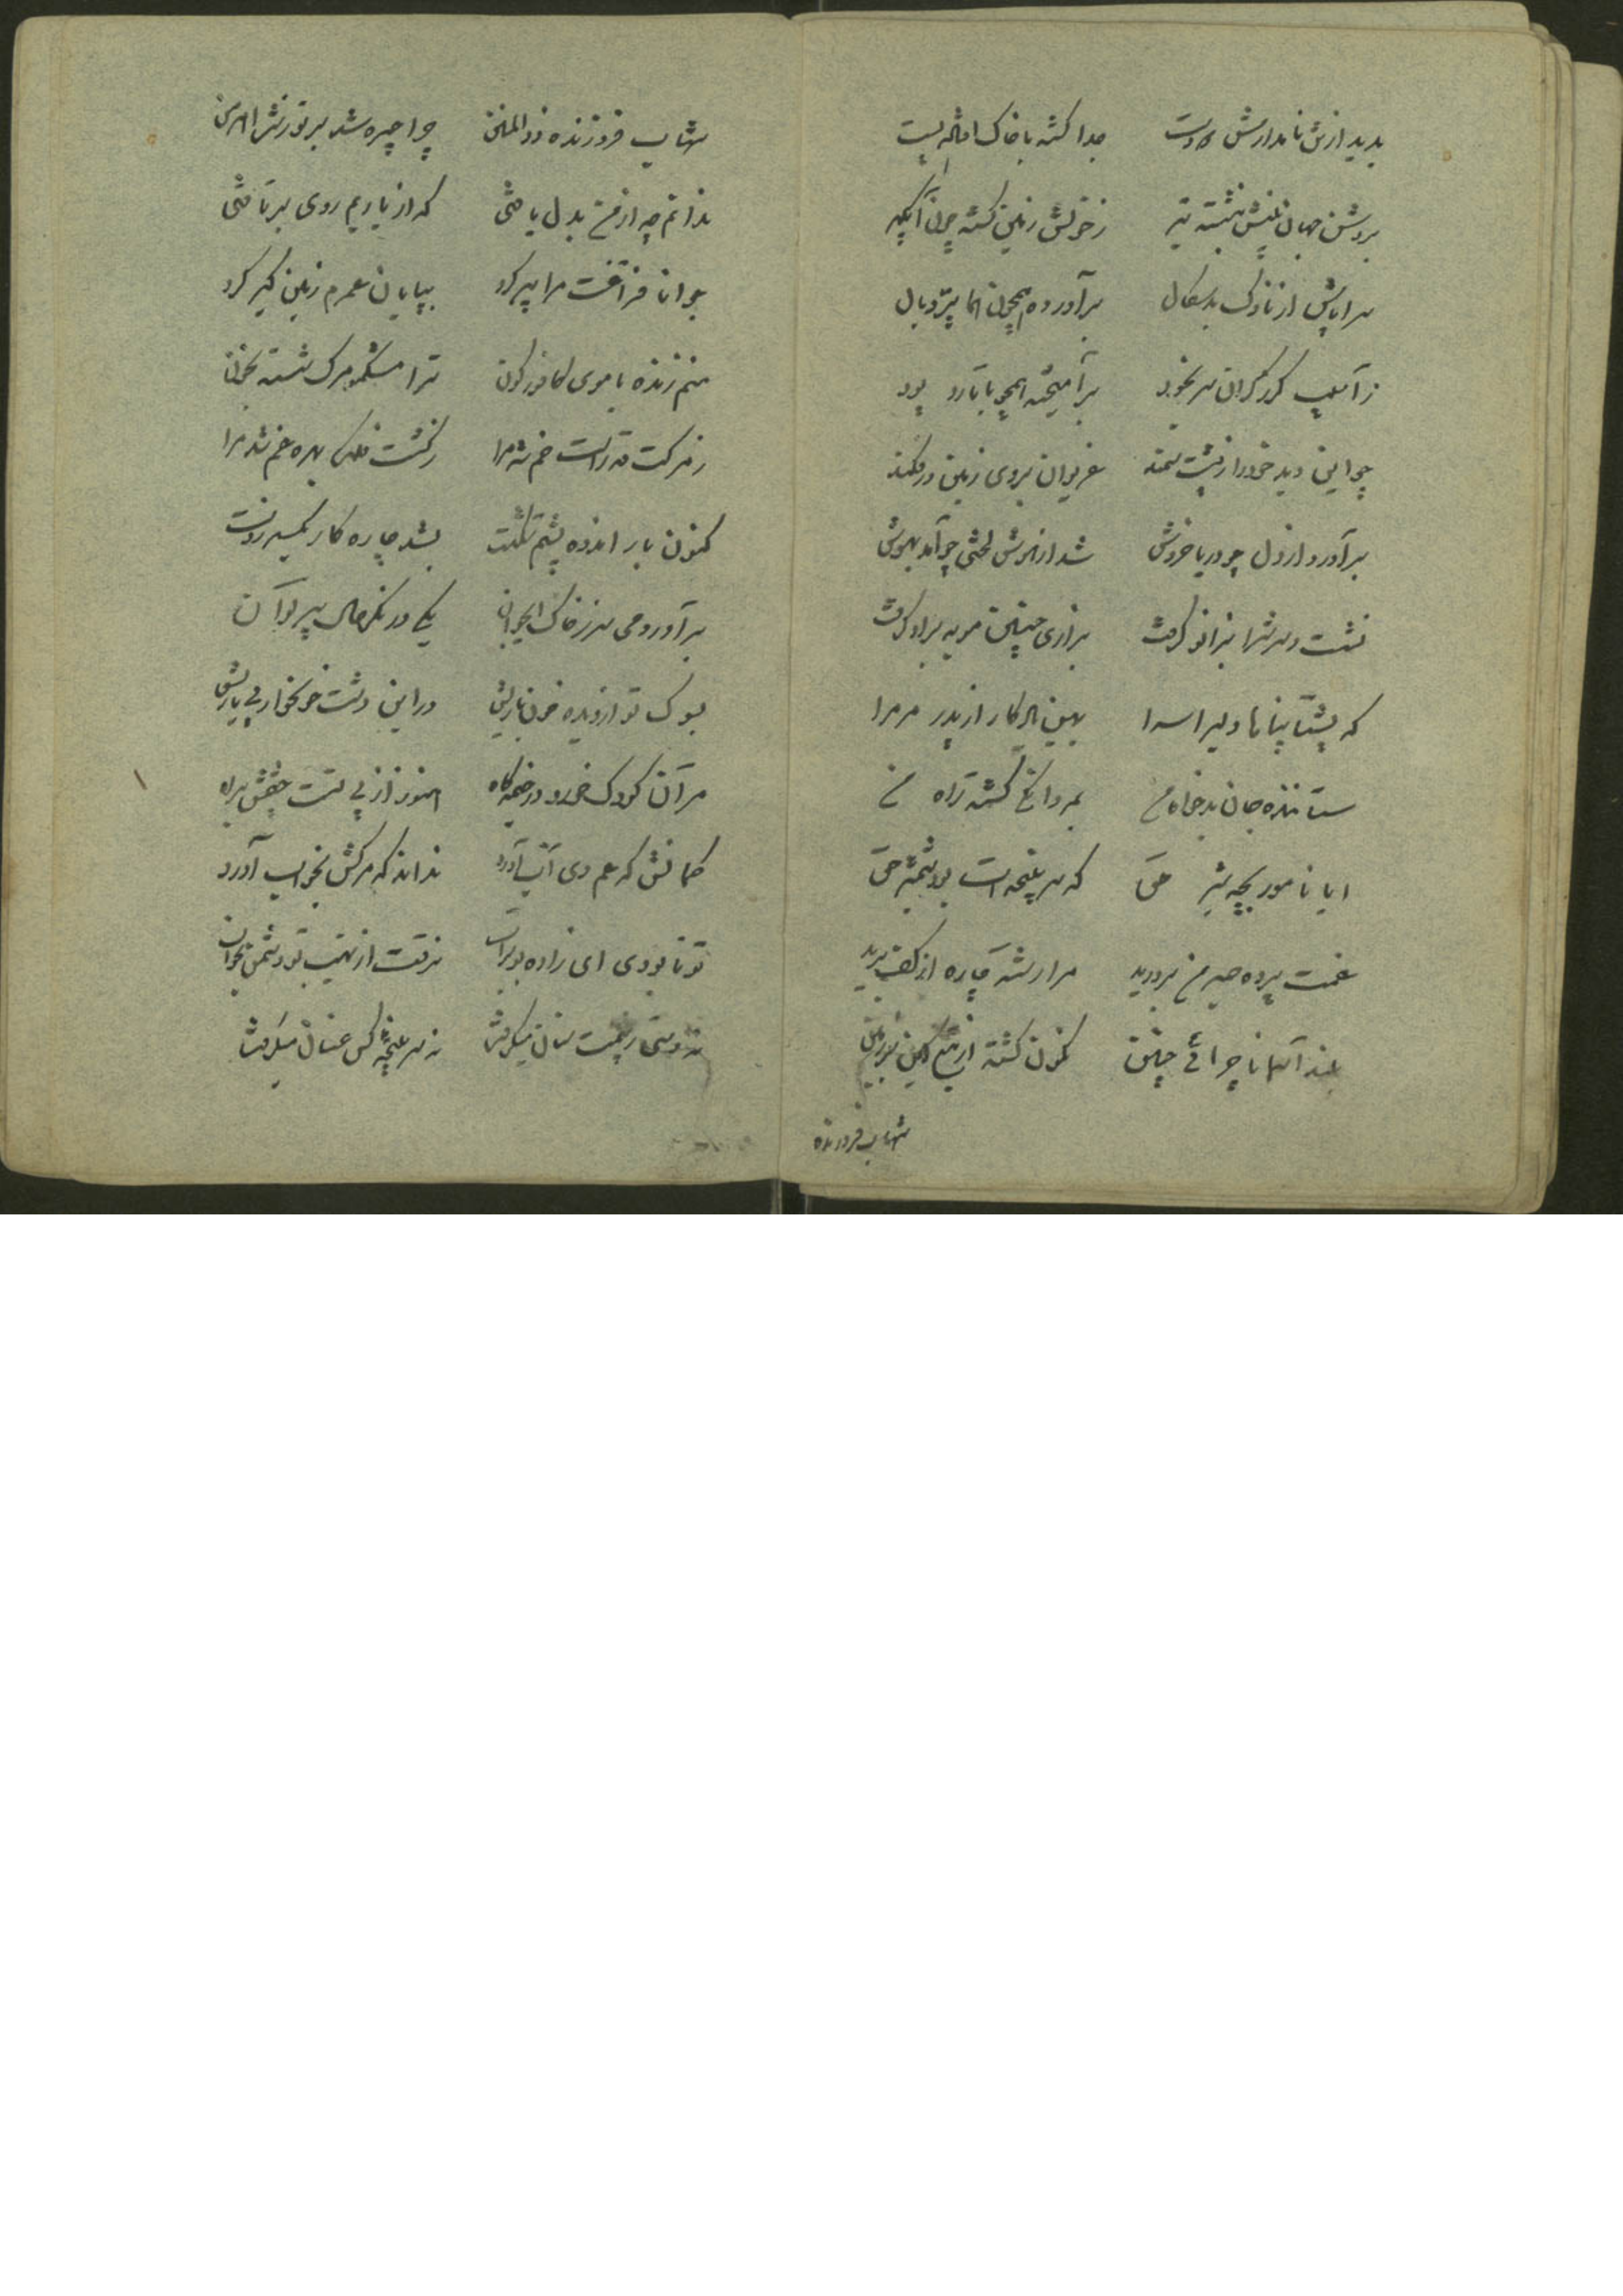 بدید از تن نامدارش دو دست جدا گشته با خاک افتاده پست
بروشن جهان بینش بنشسته تیر ز خونش زمین گشته چون آبگیر
سراپاش از ناوک بدسگال برآورده همچون هما پرّ و بال
ز آسیب گرز گران سر بخود برآمیخته همچو با تار پود
چو این دید خود را ز پشت سمند غریوان بروی زمین در فکند
برآورد از دل چو دریا خروش شد از هوش لختی چو آمد بهوش
نشست و سرش را بزانو گرفت بزاری چنین مویه بر او گرفت
که پشتا پناها دلیرا سرا بهین یادگار از پدر مر مرا
ستاننده جان بدخواه من بمردانگی گشته راه من
ایا نامور بچه شیر حق که سرپنجه ات بود شمشیر حق
غمت پرده صبر من بردرید مرا رشته چاره از کف برید
بلند آسمانا چرائی چنین کنون گشته از تیغ کین بر زمین
شهاب فروزنده
شهاب فروزنده ذوالمنن چرا چیره شد بر تو زینش اهرمن
ندانم چه از من بدل یافتی که از یاریم روی برتافتی
جوانا فراقت مرا پیر کرد بپایان عمرم زمین گیر کرد
منم زنده با موی کافور گون ترا مشکمو مرگ شسته بخون
ز مرگت قد راست خم شد مرا ز گشت فلک بهره غم شد مرا
کنون بار اندوه پشتم شکست بشد چاره کار یکسر ز دست
برآور دمی سر ز خاک ای جوان یکی در نگر حال پیر نوان
بسوک تو از دیده خون بارش در این دشت خونخوار بی یارش
مر آن کودک خرد در خیمه گاه هنوز از پی تست چشمش براه
گمانش که عم وی آب آورد نداند که مرگش بخواب آورد
تو تا بودی ای زاده بوتراب نرفت از نهیب تو دشمن بخواب
نه دستی ز بیمت سنان میگرفت نه سر پنجه کس عنان میگرفت